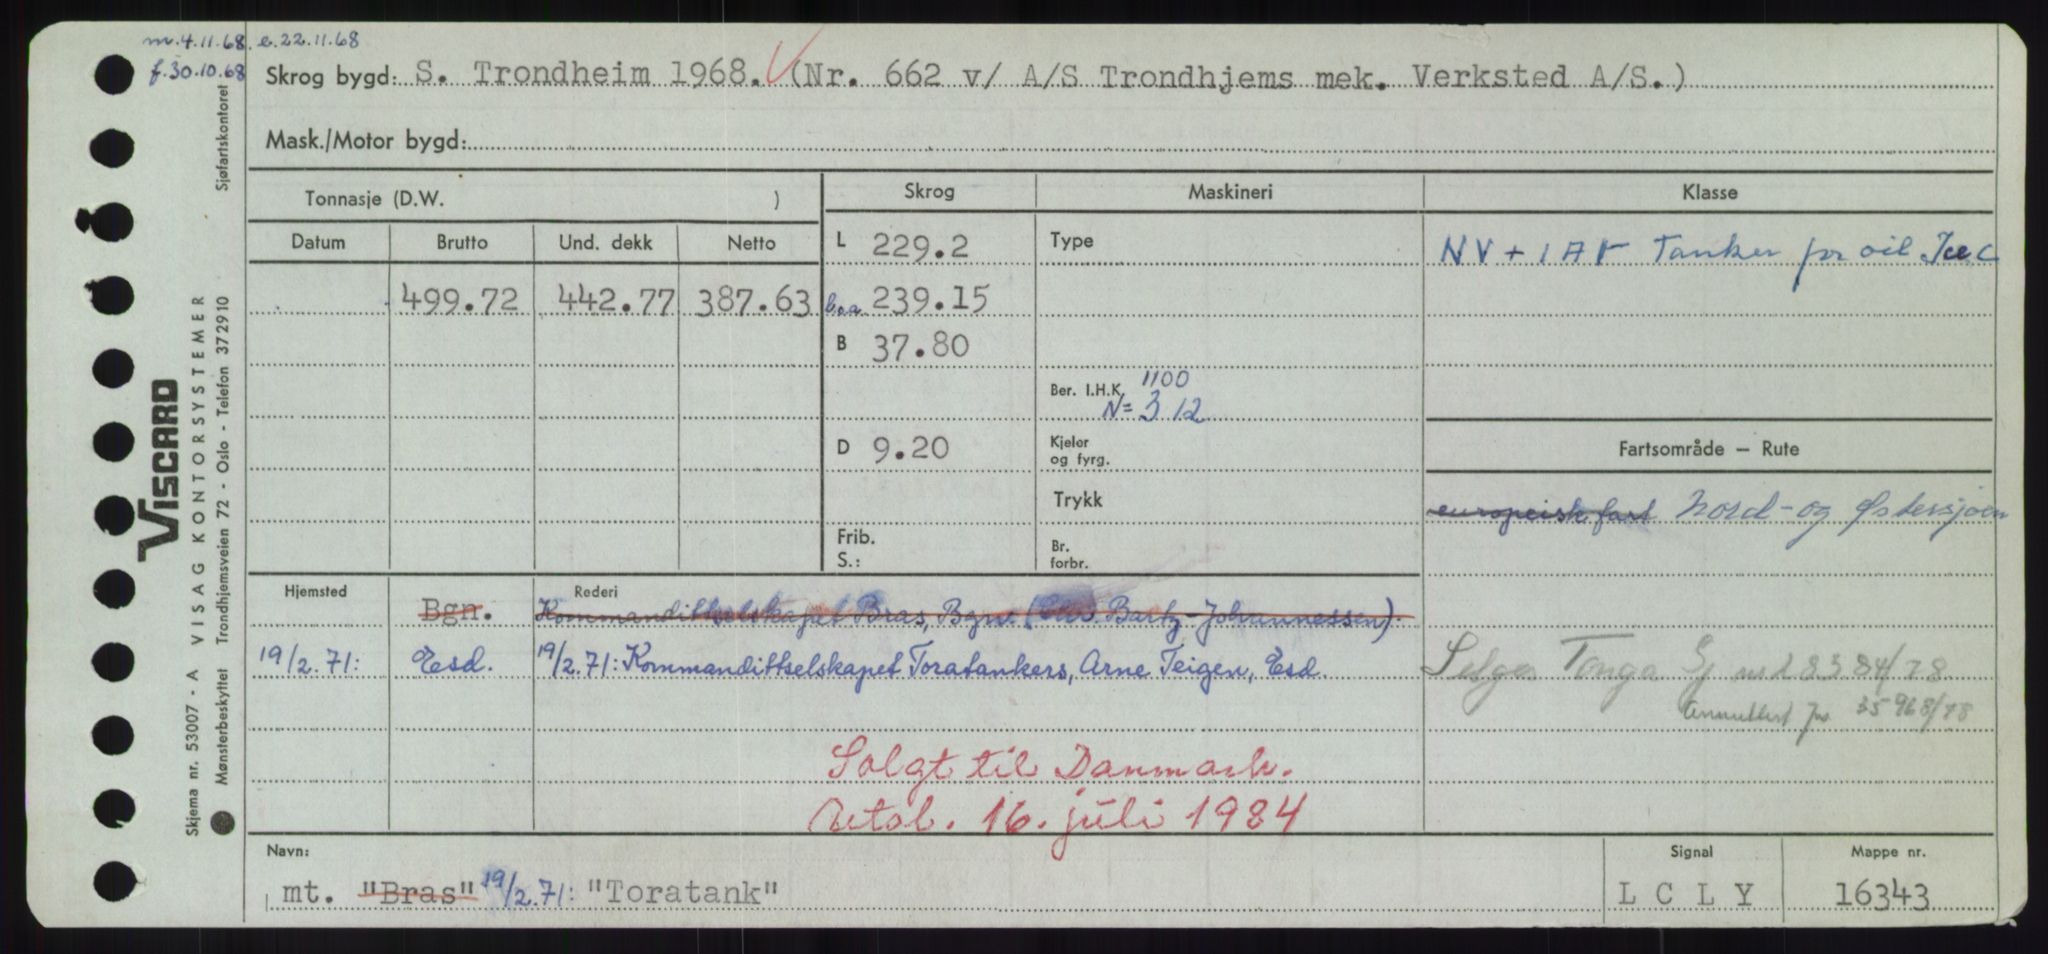 m.4.11.68. e.22.11.68
f.30.10.68
Skrog bygd: S. Trondheim 1968. (Nr. 662 v/ A/S Trondhjems mek. Verksted A/S.)
Mask./Motor bygd:
Tonnasje (D.W. ) Skrog Maskineri Klasse
Datum Brutto Und. dekk Netto L 229.2 Type NV + 1A Tanker for oil Ice C
499.72 442.77 387.63 239.15
B 37.80
Ber. I.H.K. 1100
N= 312
D 9.20 Kjeler og fyrg. Fartsområde – Rute
Trykk europeisk fart Nord- og Østersjøen
Frib. S.: Br. forbr.
Hjemsted Rederi
Bgn. Kommandittselskapet Bras, Bgn. (Bartz-Johannessen).
19/2.71: Esd. 19/2.71: Kommandittselskapet Toratankers, Arne Teigen, Esd.
Selges Tonga 8384/78
Annullert 35968/78
Solgt til Danmark.
16. juli 1984
Navn: Signal Mappe nr.
mt. "Bras" 19/2.71: "Toratank" L C L Y 16343
Sjøfartskontoret
VISCARD
VISAG KONTORSYSTEMER
Trondhjemsveien 72 - Oslo - Telefon 372910
Skjema nr. 53007 - A
Mønsterbeskyttet